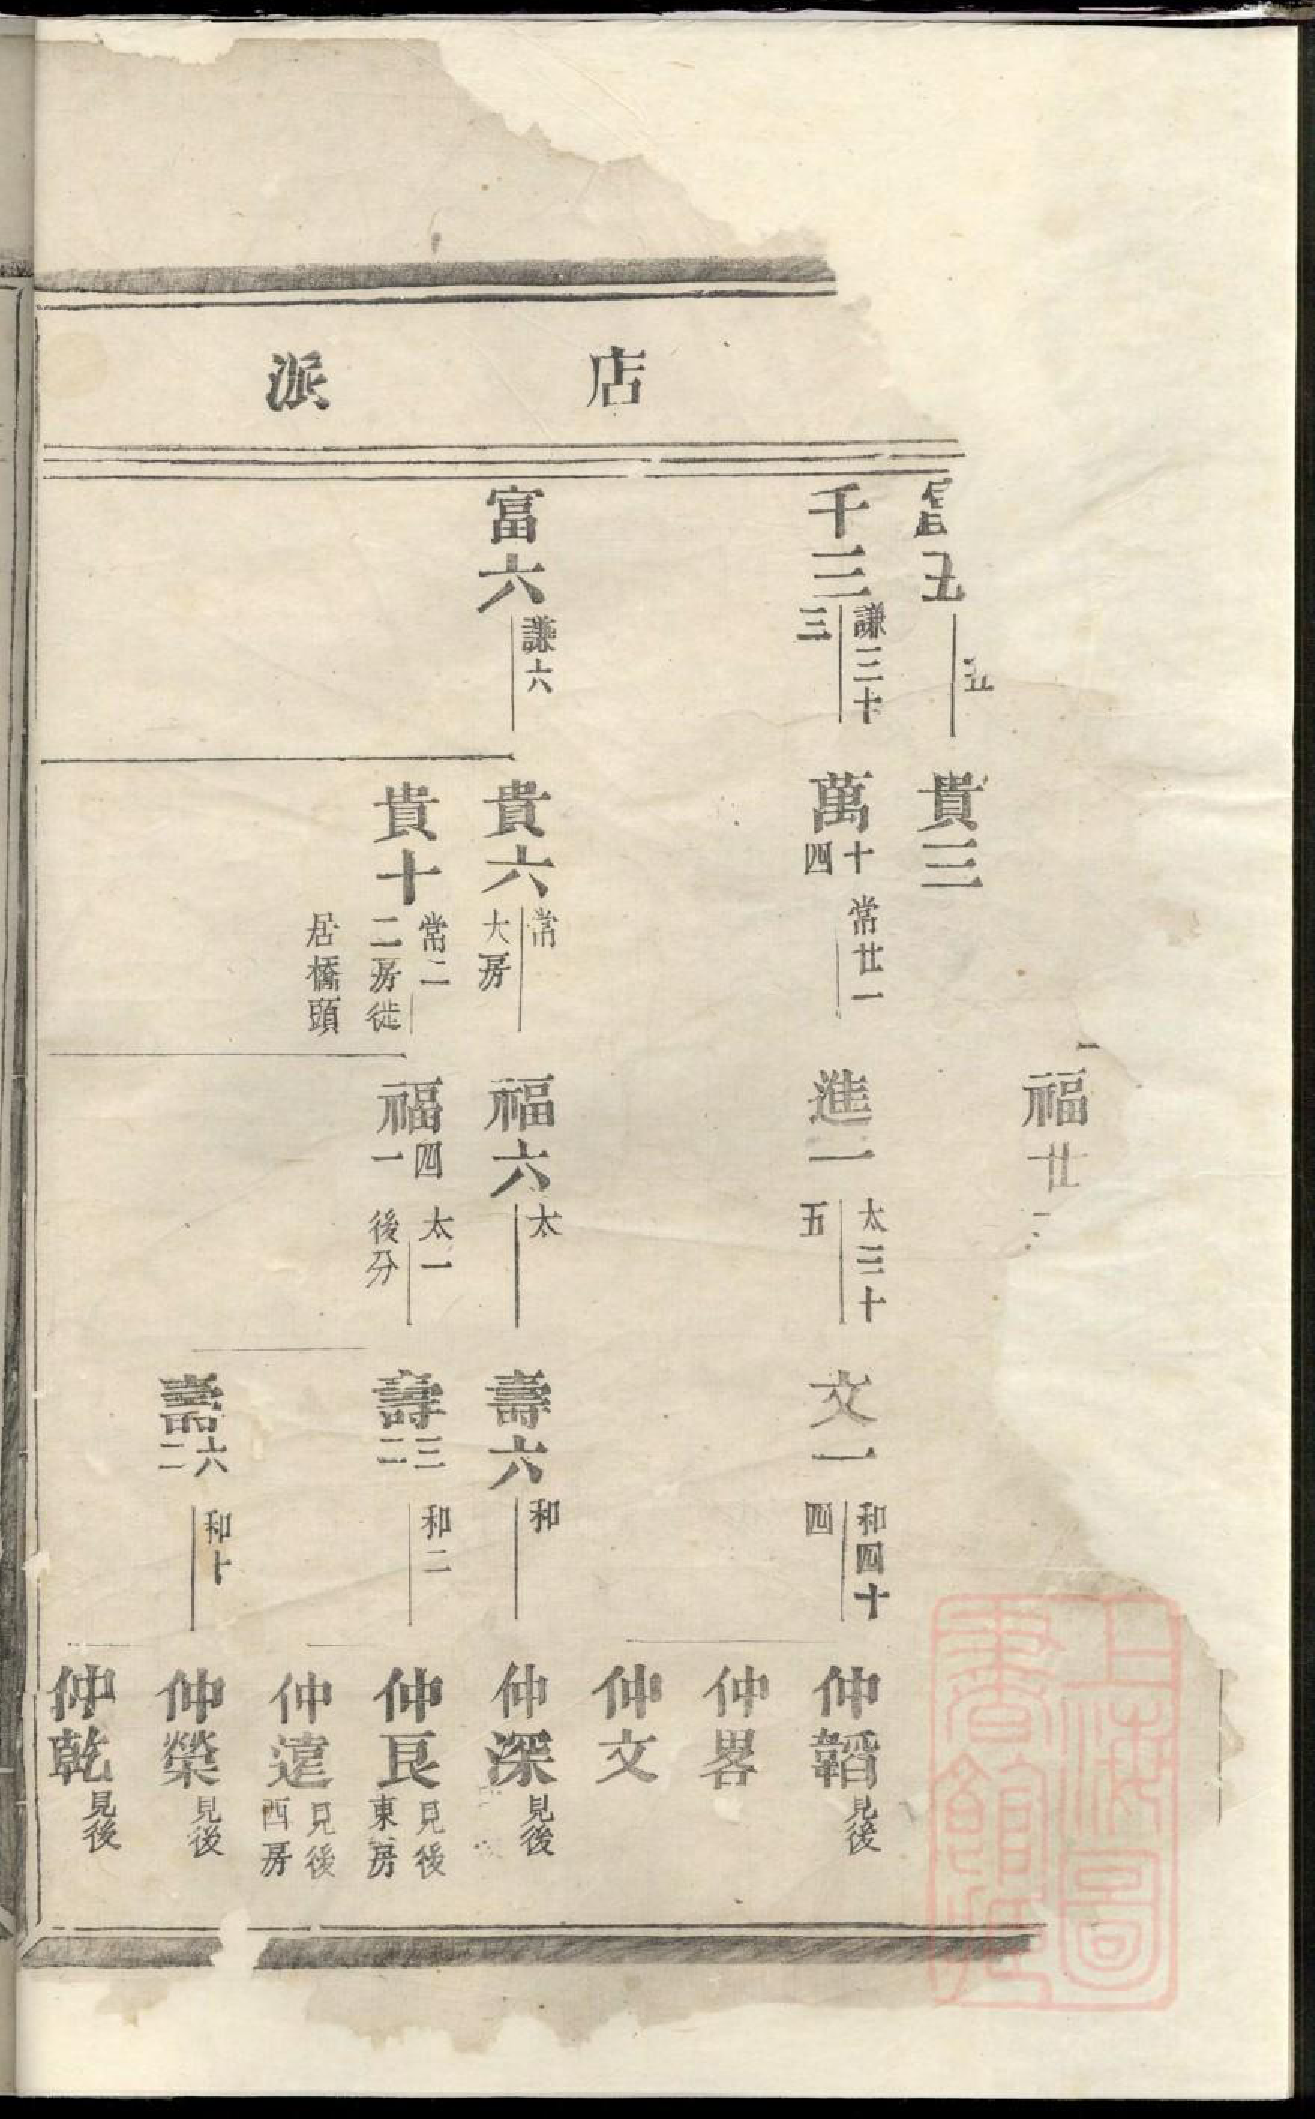 店派
福廿
富五
五
貴三
千三
謙三十
三
萬十四
常廿一
進一
太三十
五
文一
和四十
四
仲韜
見後
仲畧
仲文
富六
謙六
貴六
常
大房
福六
太
壽六
和
仲深
見後
貴十
常二
二房徙
居橋頭
福四一
太一
後分
壽三二
和二
仲良
見後
東房
仲遠
見後
西房
壽六二
和十
仲榮
見後
仲乾
見後
上海圖
書館藏